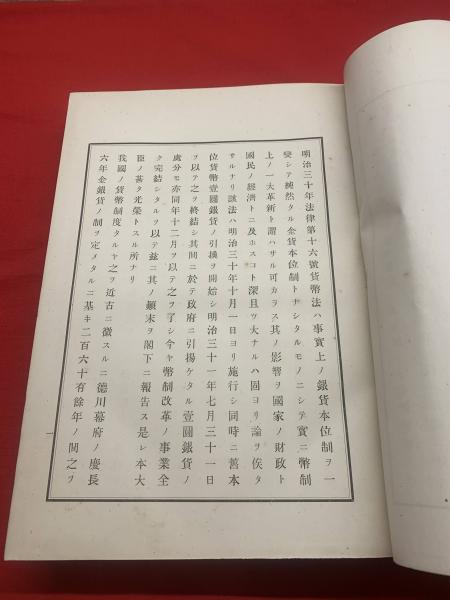 明治三十年法律第十六號貨幣法ハ事實上ノ銀貨本位制ヲ一
變シテ純然タル金貨本位制トナシタルモノニシテ實ニ幣制
上ノ一大革新ト謂ハサル可カラス其ノ影響ヲ國家ノ財政ト
國民ノ經濟トニ及ホスコト深且ツ大ナルハ固ヨリ論ヲ俟タ
サルナリ該法ハ明治三十年十月一日ヨリ施行シ同時ニ舊本
位貨幣壹圓銀貨ノ引換ヲ開始シ明治三十一年七月三十一日
ヲ以テ之ヲ終結シ其間ニ於テ政府ニ引揚ケタル壹圓銀貨ノ
處分モ亦同年十二月ヲ以テ之ヲ了シ今ヤ幣制改革ノ事業全
ク完結シタルヲ以テ茲ニ其ノ顚末ヲ閣下ニ報告ス是レ本大
臣ノ甚タ光榮トスル所ナリ
我國ノ貨幣制度タルヤ之ヲ近古ニ徵スルニ德川幕府ノ慶長
六年金銀貨ノ制ヲ定メタルニ基キ二百六十有餘年ノ間之ヲ
一